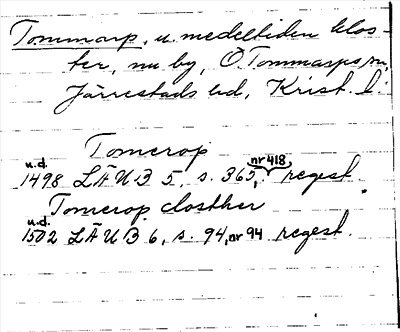 Tommarp, u. medeltiden klos-
ter, nu by, Ö. Tommarps sn,
Järrestads hd, Krist. l.
Tomerop
u.d.
1498 LÄUB 5, s. 365, nr 418 regest
Tomerop closther
u.d.
1502 LÄUB 6, s. 94, nr 94 regest.